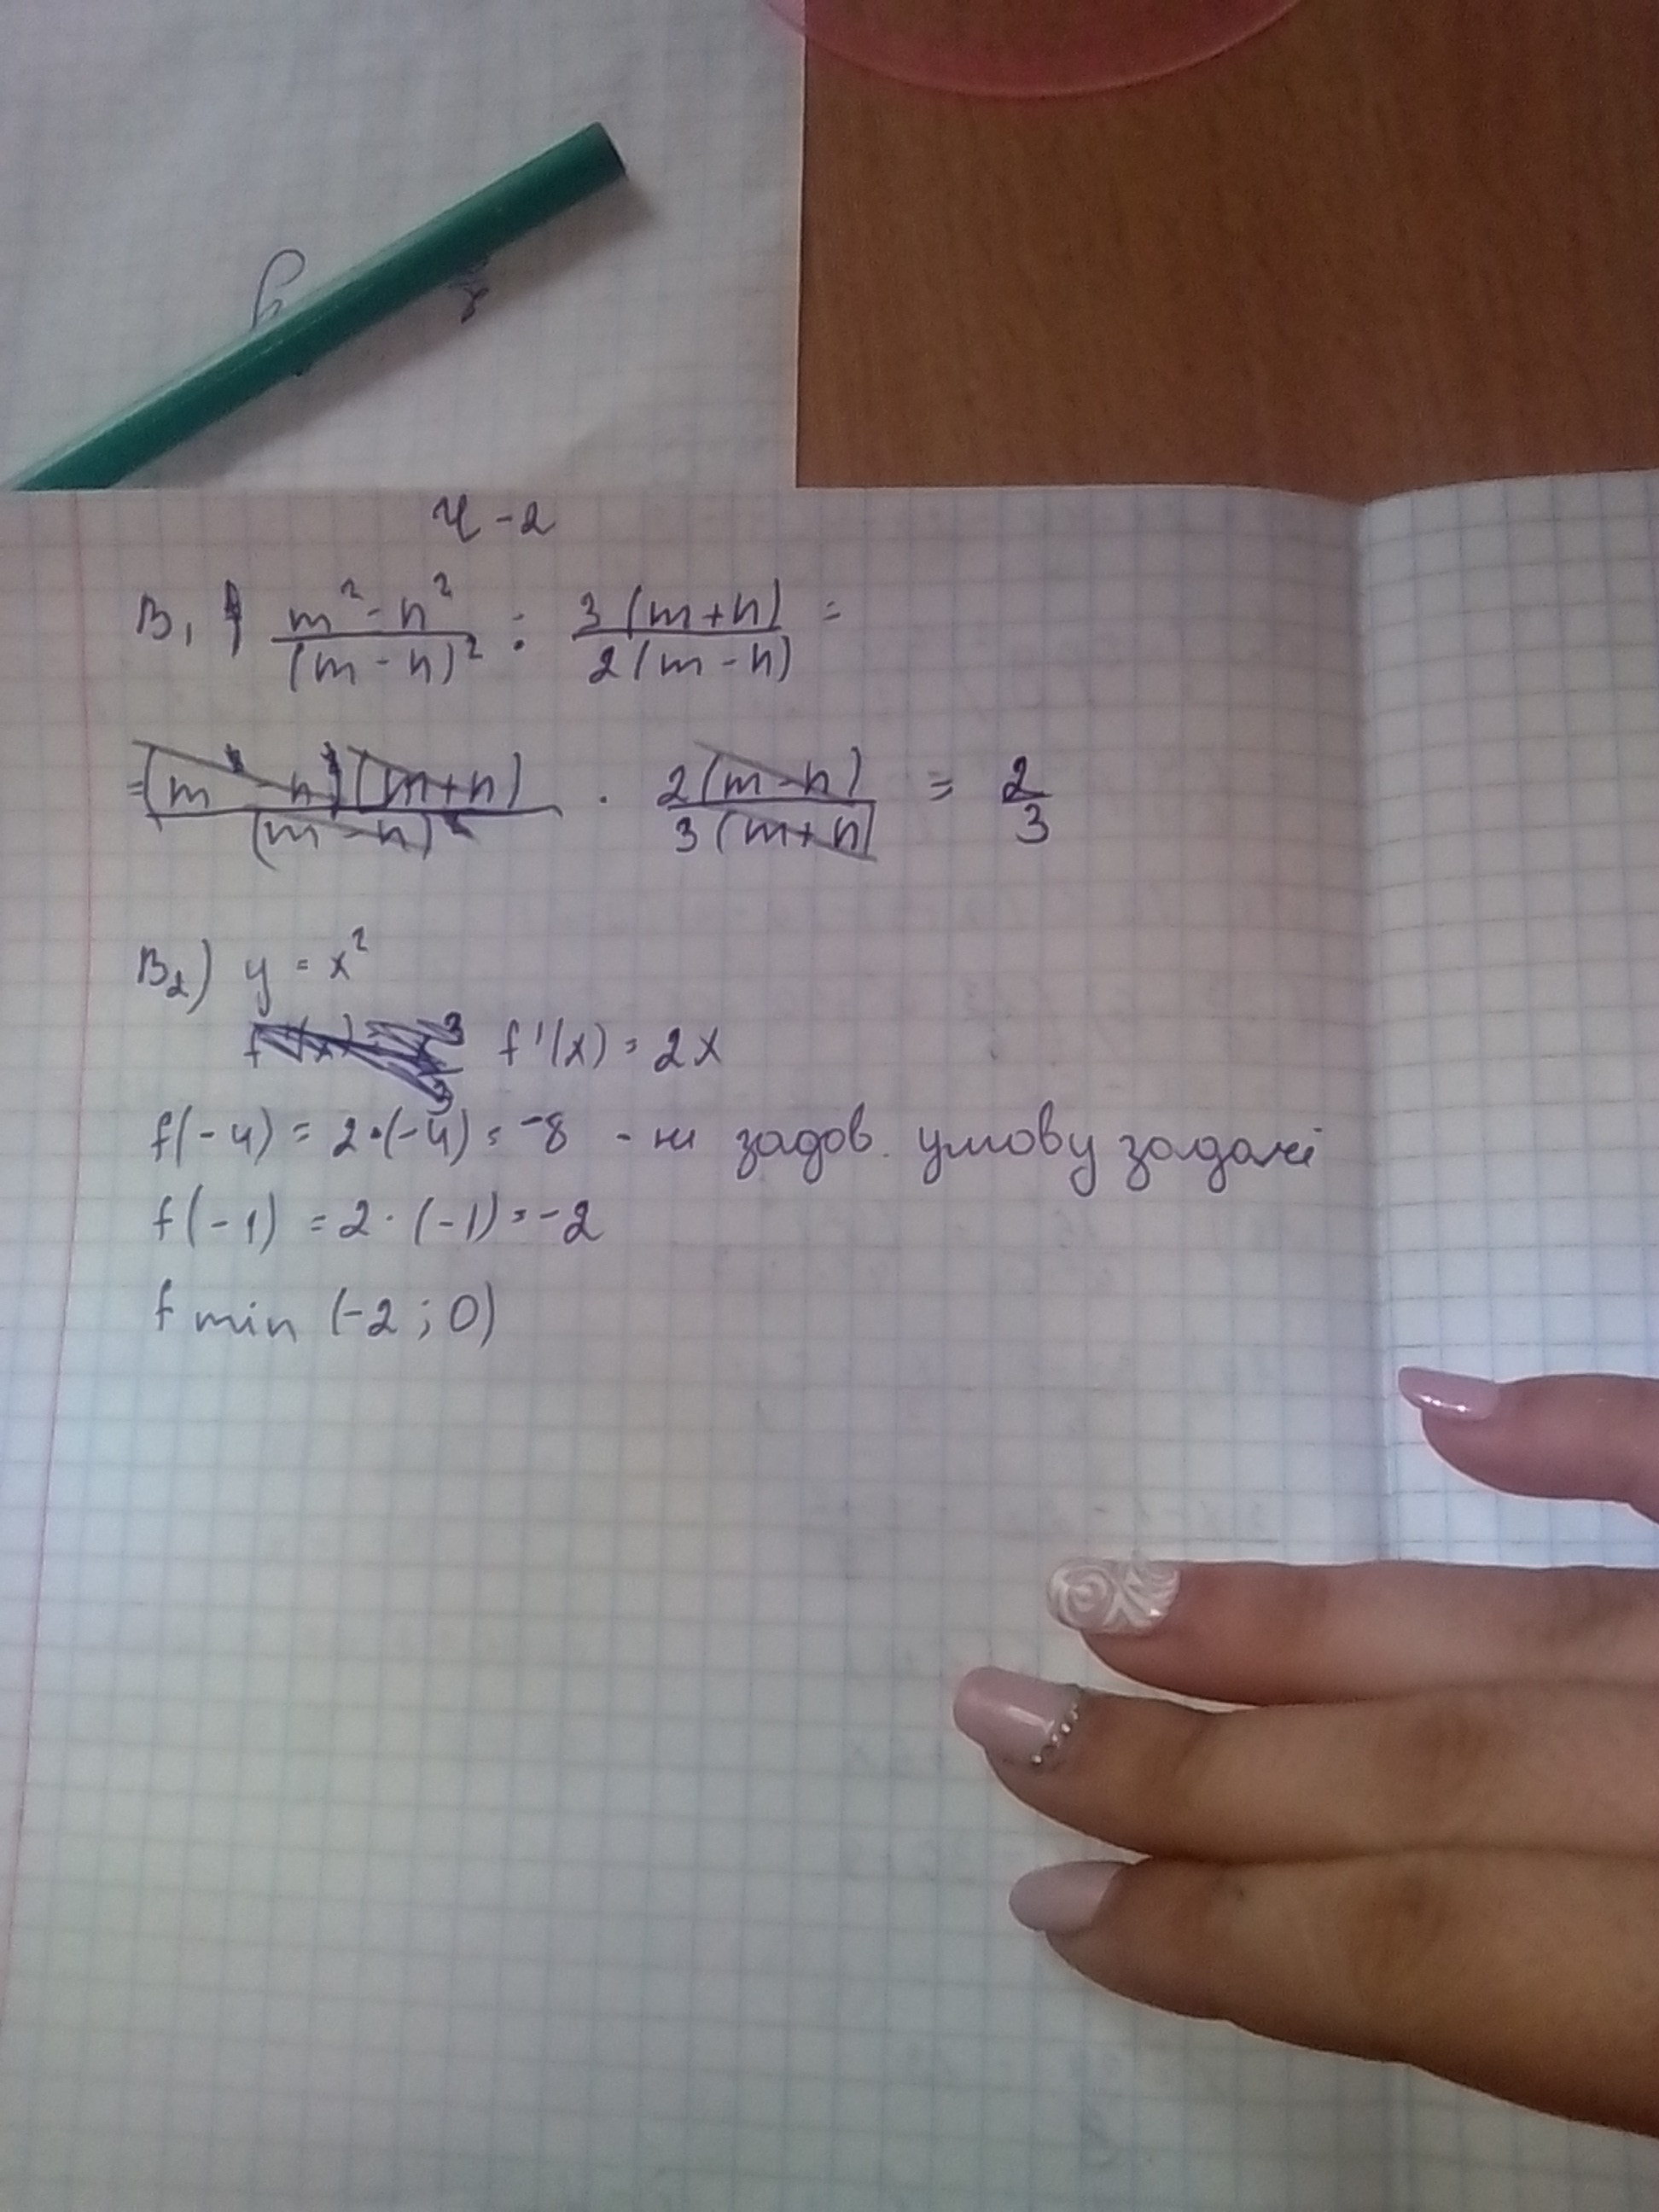 Ч - 2
В1 (m² - n²)/(m - n)² : 3(m+n)/2(m-n) =
= (m - n)(m+n)/(m - n)² · 2(m-n)/3(m+n) = 2/3
В2) y = x²
f'(x) = 2x
f(-4) = 2·(-4) = -8 - не задов. умову задачі
f(-1) = 2·(-1) = -2
f min (-2; 0)